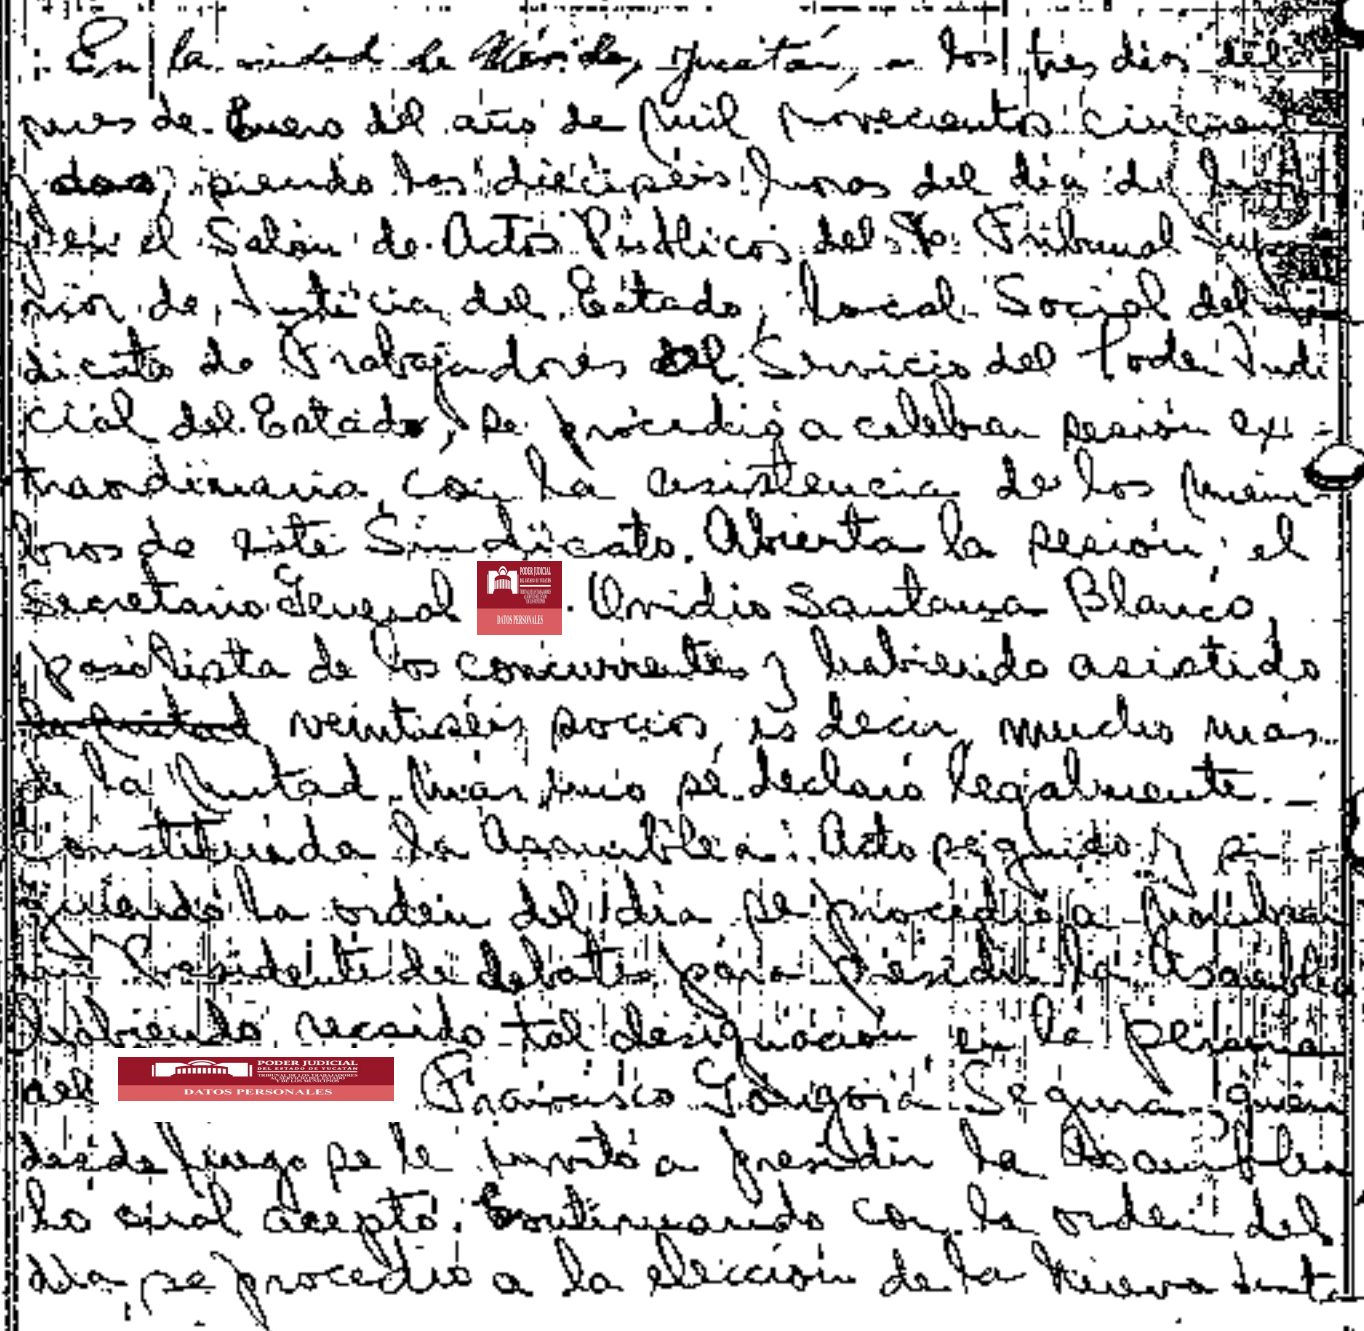 En la ciudad de Mérida, Yucatán, a los tres días del
mes de Enero del año de mil novecientos cincuenta
dos, siendo las dieciséis horas del día de hoy
en el Salón de Actos Públicos del H. Tribunal Supe
rior de Justicia del Estado, local Social del Sin
dicato de Trabajadores del Servicio del Poder Judi
cial del Estado, se procedió a celebrar sesión ex-
traordinaria con la asistencia de los miem
bros de este Sindicato. Abierta la sesión, el
Secretario General
PODER JUDICIAL
DEL ESTADO DE YUCATÁN
DATOS PERSONALES
. Ovidio Santana Blanco
pasó lista de los concurrentes y habiendo asistido
veintiséis socios, es decir mucho más
de la mitad más uno se declaró legalmente
constituida la Asamblea. Acto seguido y si-
guiendo la orden del día se procedió a nombrar
un Presidente de debates para presidir la Asamblea
habiendo recaído tal designación en la persona
del
PODER JUDICIAL
DEL ESTADO DE YUCATAN
TRIBUNAL DE LOS TRABAJADORES
AL SERVICIO DEL ESTADO
Y DE LOS MUNICIPIOS
DATOS PERSONALES
Francisco Góngora Segura quien
desde luego se le invitó a presidir la Asamblea
lo cual aceptó. Continuando con la orden del
día se procedió a la elección de la nueva